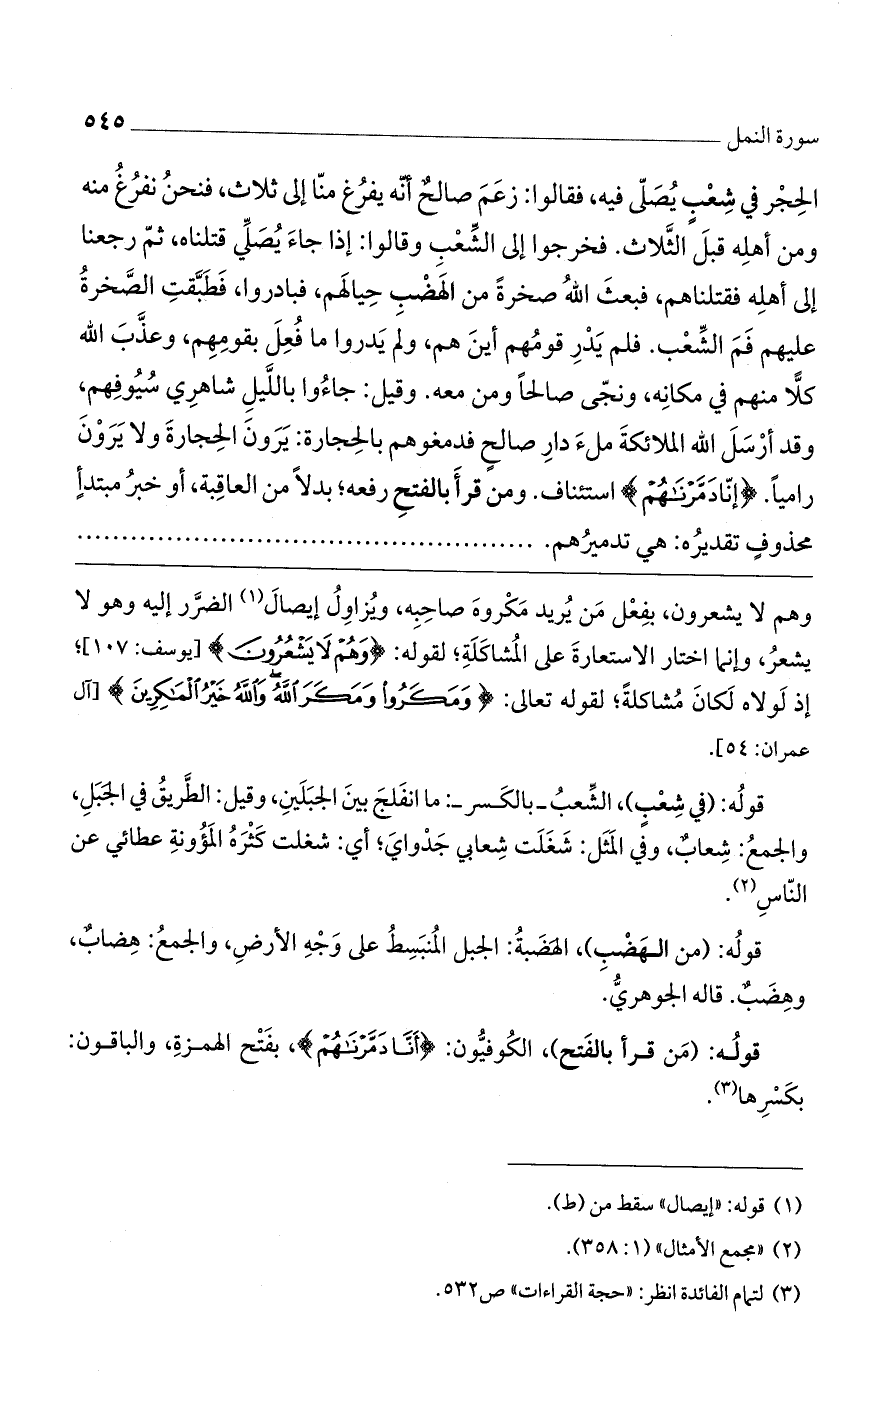 سورة النمل ٥٤٥
الحِجْر في شِعْبٍ يُصَلّى فيه، فقالوا: زعَمَ صالحٌ أنّه يفرُغ منّا إلى ثلاث، فنحنُ نفرُغُ منه
ومن أهلِه قبلَ الثَّلاث. فخرجوا إلى الشِّعْبِ وقالوا: إذا جاءَ يُصَلِّي قتلناه، ثمّ رجعنا
إلى أهلِه فقتلناهم، فبعثَ اللهُ صخرةً من الهَضْبِ حِيالَهم، فبادروا، فَطَبَّقتِ الصَّخرةُ
عليهم فَمَ الشِّعْب. فلم يَدْرِ قومُهم أينَ هم، ولم يَدروا ما فُعِلَ بقومِهم، وعذَّبَ الله
كلًّا منهم في مكانِه، ونجّى صالحاً ومن معه. وقيل: جاءُوا باللَّيلِ شاهرِي سُيُوفِهم،
وقد أرْسَلَ الله الملائكةَ ملءَ دارِ صالحٍ فدمغوهم بالحِجارة: يَرَونَ الحِجارةَ ولا يَرَوْنَ
رامياً. ﴿إنَّا دَمَّرْنَٰهُمْ﴾ استئناف. ومن قرأَ بالفتحِ رفعه؛ بدلاً من العاقِبة، أو خبرُ مبتدأٍ
محذوفٍ تقديرُه: هي تدميرُهم. ................................................
وهم لا يشعرون، بفِعْل مَن يُريد مَكْروهَ صاحبِه، ويُزاوِلُ إيصالَ(١) الضرَّر إليه وهو لا
يشعرُ، وإنما اختار الاستعارةَ على المُشاكَلَةِ؛ لقوله: ﴿وَهُمْ لَا يَشْعُرُونَ﴾ [يوسف: ١٠٧]؛
إذ لَولاه لَكانَ مُشاكلةً؛ لقوله تعالى: ﴿وَمَكَرُوا۟ وَمَكَرَ ٱللَّهُ ۖ وَٱللَّهُ خَيْرُ ٱلْمَٰكِرِينَ﴾ [آل
عمران: ٥٤].
قولُه: (في شِعْبٍ)، الشِّعبُ ـ بالكَسر ـ: ما انفلَجَ بينَ الجبَلَينِ، وقيل: الطَّريقُ في الجبَلِ،
والجمعُ: شِعابٌ، وفي المَثَل: شَغَلَت شِعابي جَدْوايَ؛ أي: شغلت كَثْرَةُ المَؤُونةِ عطائي عن
النّاسِ(٢).
قولُه: (من الـهَضْبِ)، الهَضَبةُ: الجبل المُنبَسِطُ على وَجْهِ الأرضِ، والجمعُ: هِضابٌ،
وهِضَبٌ. قاله الجوهريُّ.
قولُـه: (مَن قـرأ بالفَتح)، الكُوفيُّون: ﴿أَنَّا دَمَّرْنَٰهُمْ﴾، بفَتْح الهمـزةِ، والباقـون:
بكَسْرِها(٣).
(١) قوله: «إيصال» سقط من (ط).
(٢) «مجمع الأمثال» (١: ٣٥٨).
(٣) لتمام الفائدة انظر: «حجة القراءات» ص٥٣٢.